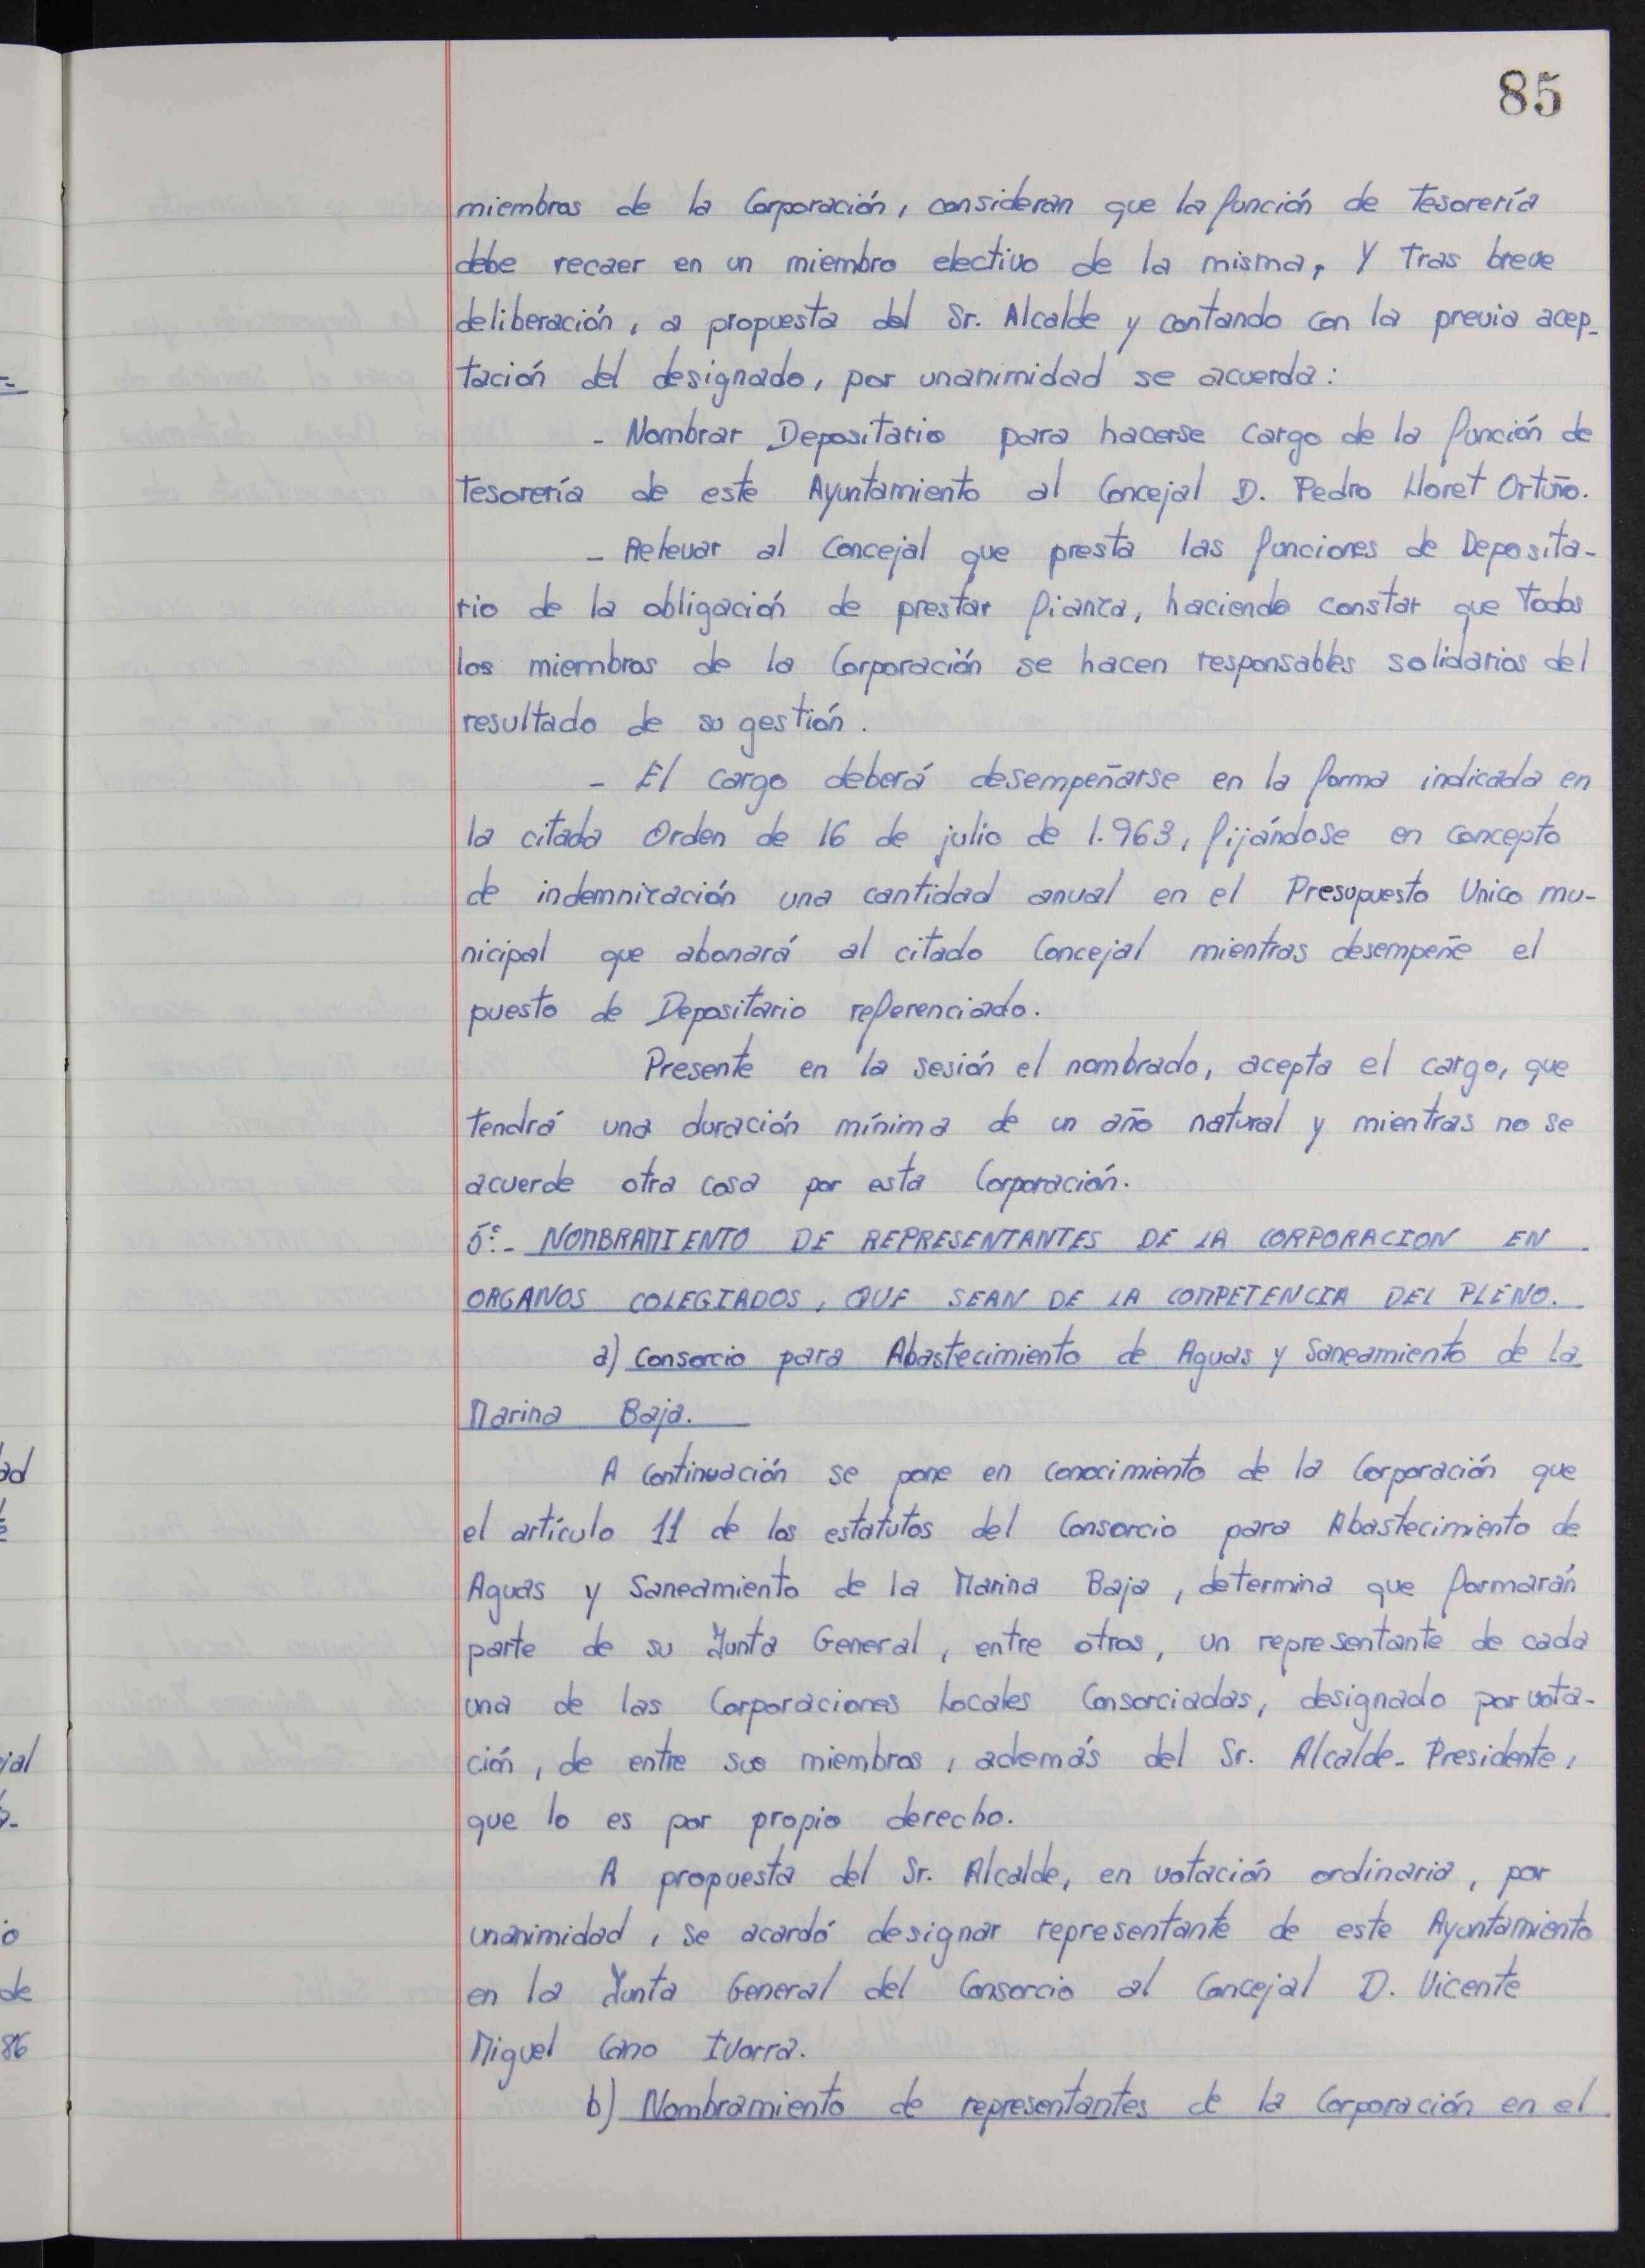 85
miembros de la Corporación, consideran que la función de Tesorería
debe recaer en un miembro electivo de la misma, Y Tras breve
deliberación, a propuesta del Sr. Alcalde y contando con la previa acep-
tación del designado, por unanimidad se acuerda:
- Nombrar Depositario para hacerse cargo de la función de
Tesorería de este Ayuntamiento al Concejal D. Pedro Lloret Ortuño.
- Relevar al Concejal que presta las funciones de Deposita-
rio de la obligación de prestar fianza, haciendo constar que Todos
los miembros de la Corporación se hacen responsables solidarios del
resultado de su gestión.
- El cargo deberá desempeñarse en la forma indicada en
la citada Orden de 16 de julio de 1.963, fijándose en concepto
de indemnización una cantidad anual en el Presupuesto Unico mu-
nicipal que abonará al citado Concejal mientras desempeñe el
puesto de Depositario referenciado.
Presente en la sesión el nombrado, acepta el cargo, que
tendrá una duración mínima de un año natural y mientras no se
acuerde otra cosa por esta Corporación.
5º.- NOMBRAMIENTO DE REPRESENTANTES DE LA CORPORACION EN
ORGANOS COLEGIADOS, QUE SEAN DE LA COMPETENCIA DEL PLENO.
a) Consorcio para Abastecimiento de Aguas y Saneamiento de la
Marina Baja.
A continuación se pone en conocimiento de la Corporación que
el artículo 11 de los estatutos del Consorcio para Abastecimiento de
Aguas y Saneamiento de la Marina Baja, determina que formarán
parte de su Junta General, entre otros, un representante de cada
una de las Corporaciones Locales Consorciadas, designado por vota-
ción, de entre sus miembros, además del Sr. Alcalde-Presidente,
que lo es por propio derecho.
A propuesta del Sr. Alcalde, en votación ordinaria, por
unanimidad, se acordó designar representante de este Ayuntamiento
en la Junta General del Consorcio al Concejal D. Vicente
Miguel Cano Ivorra.
b) Nombramiento de representantes de la Corporación en el